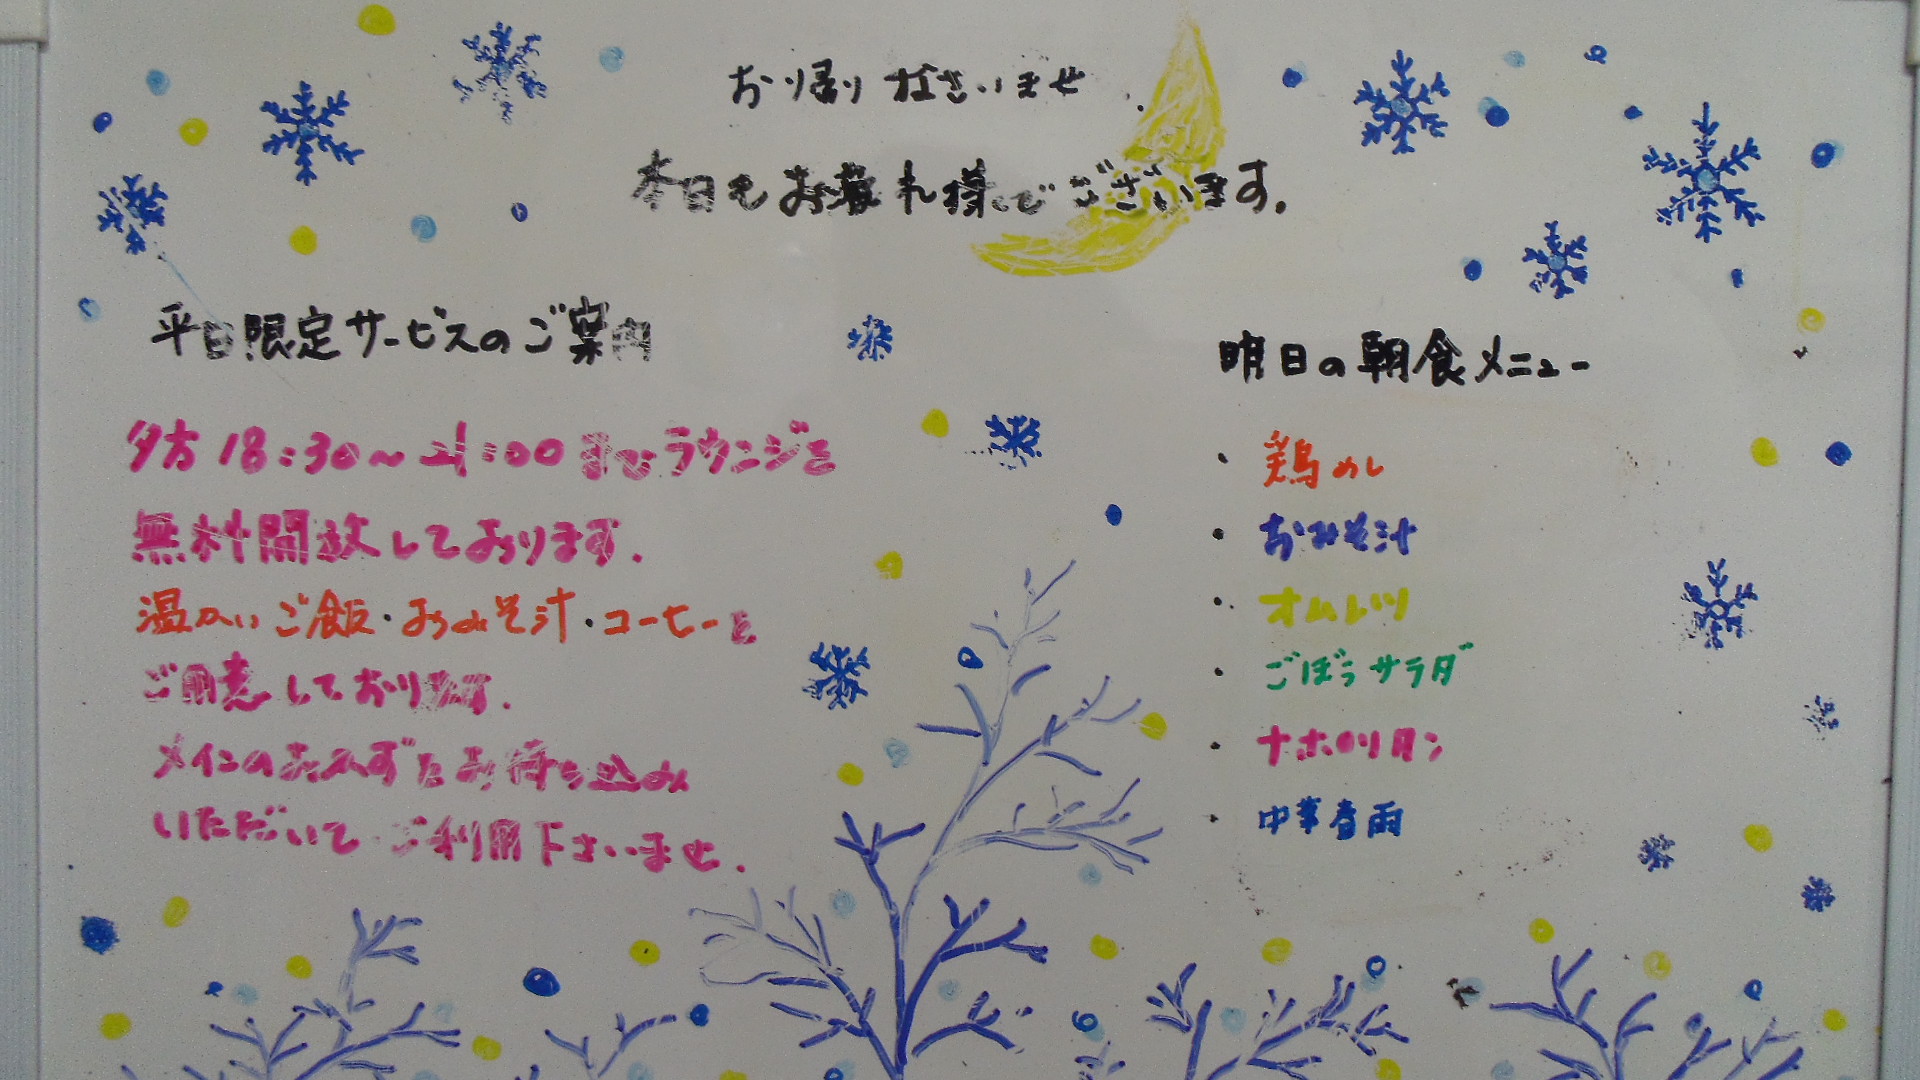 お帰りなさいませ
本日もお疲れ様でございます。
平日限定サービスのご案内
夕方18:30~21:00までラウンジを
無料開放しております.
温かいご飯・おみそ汁・コーヒーを
ご用意しております.
メインのおかずをお持ち込み
いただいてご利用下さいませ.
明日の朝食メニュー
・鶏めし
・おみそ汁
・オムレツ
・ごぼうサラダ
・ナポリタン
・中華春雨